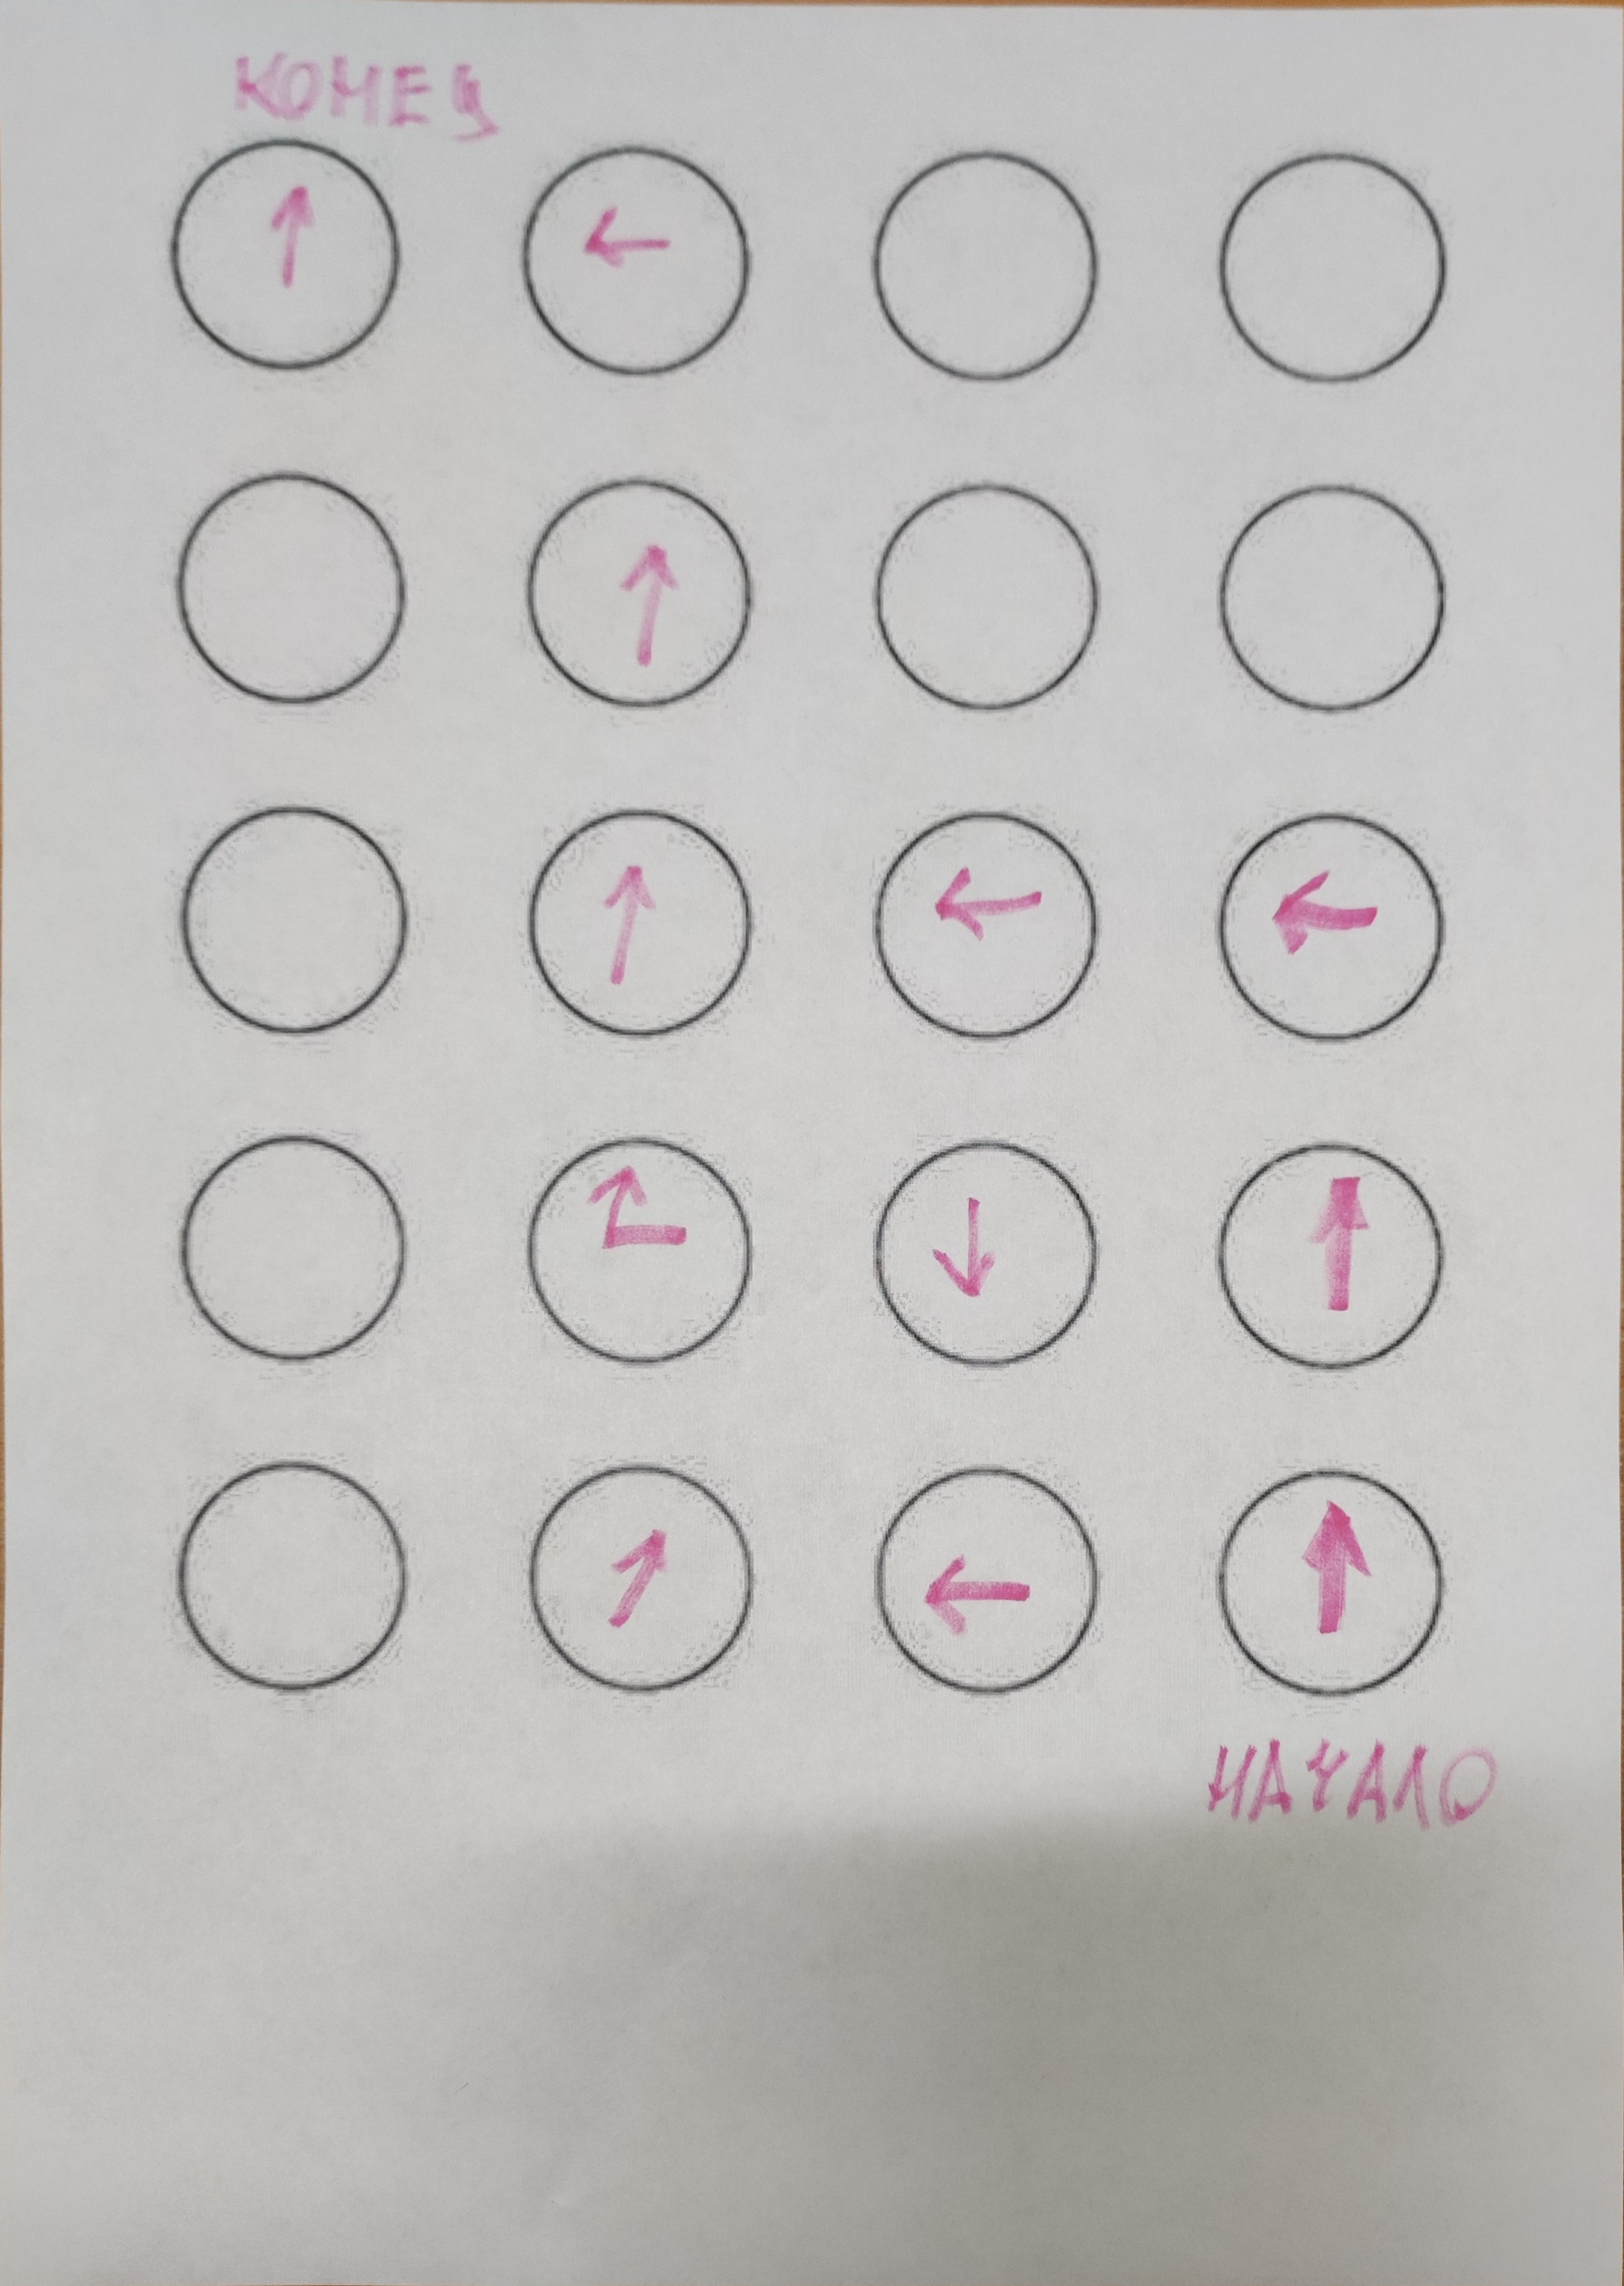 КОНЕЦ
НАЧАЛО